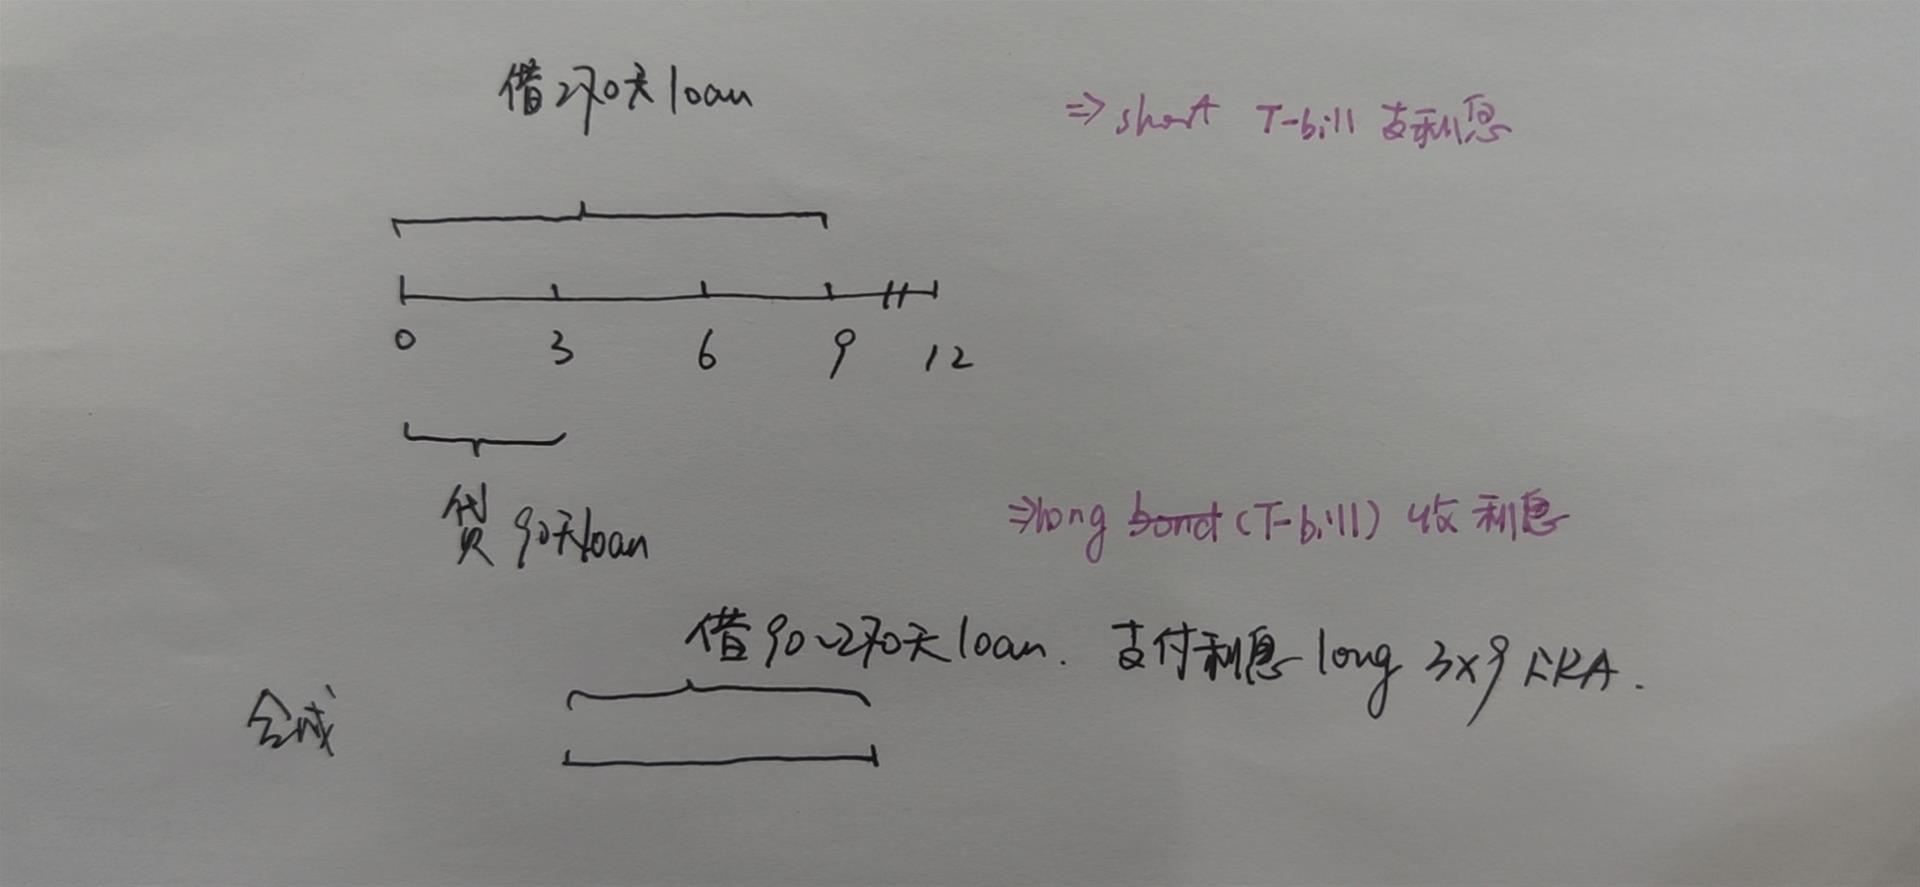 借270天loan
⇒ short T-bill 支利息
0 3 6 9 12
贷90天loan
⇒long bond (T-bill) 收利息
借90~270天loan. 支付利息 long 3x9 FRA.
合成